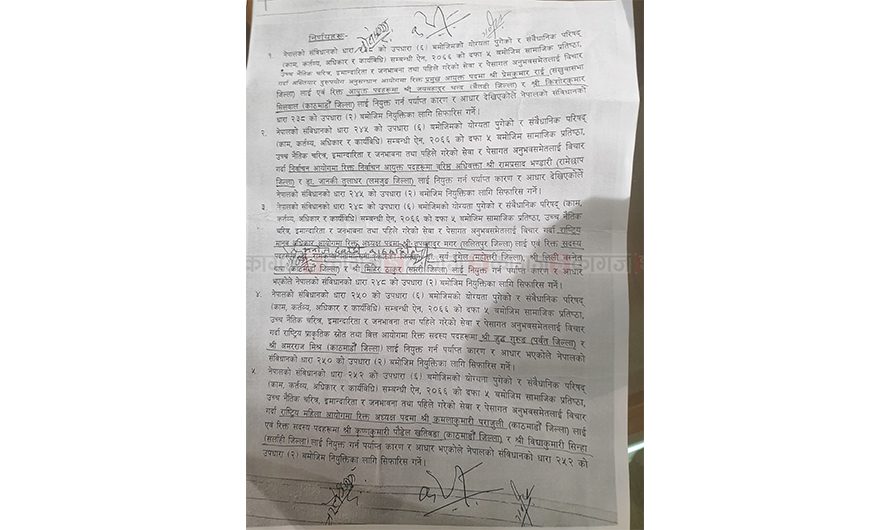 निर्णयहरू:-
१. नेपालको संविधानको धारा २३८ को उपधारा (६) बमोजिमको योग्यता पुगेको र संवैधानिक परिषद्
(काम, कर्तव्य, अधिकार र कार्यविधि) सम्बन्धी ऐन, २०६६ को दफा ५ बमोजिम सामाजिक प्रतिष्ठा,
उच्च नैतिक चरित्र, इमान्दारिता र जनभावना तथा पहिले गरेको सेवा र पेसागत अनुभवसमेतलाई विचार
गर्दा अख्तियार दुरुपयोग अनुसन्धान आयोगमा रिक्त प्रमुख आयुक्त पदमा श्री प्रेमकुमार राई (संखुवासभा
जिल्ला) लाई एवं रिक्त आयुक्त पदहरूमा श्री जयबहादुर चन्द (बैतडी जिल्ला) र श्री किशोरकुमार
सिलवाल (काठमाडौँ जिल्ला) लाई नियुक्त गर्न पर्याप्त कारण र आधार देखिएकोले नेपालको संविधानको
धारा २३८ को उपधारा (२) बमोजिम नियुक्तिका लागि सिफारिस गर्ने।
२. नेपालको संविधानको धारा २४५ को उपधारा (६) बमोजिमको योग्यता पुगेको र संवैधानिक परिषद्
(काम, कर्तव्य, अधिकार र कार्यविधि) सम्बन्धी ऐन, २०६६ को दफा ५ बमोजिम सामाजिक प्रतिष्ठा,
उच्च नैतिक चरित्र, इमान्दारिता र जनभावना तथा पहिले गरेको सेवा र पेसागत अनुभवसमेतलाई विचार
गर्दा निर्वाचन आयोगमा रिक्त निर्वाचन आयुक्त पदहरूमा वरिष्ठ अधिवक्ता श्री रामप्रसाद भण्डारी (रामेछाप
जिल्ला) र डा. जानकी तुलाधर (लमजुङ जिल्ला) लाई नियुक्त गर्न पर्याप्त कारण र आधार देखिएकोले
नेपालको संविधानको धारा २४५ को उपधारा (२) बमोजिम नियुक्तिका लागि सिफारिस गर्ने।
३. नेपालको संविधानको धारा २४८ को उपधारा (६) बमोजिमको योग्यता पुगेको र संवैधानिक परिषद् (काम,
कर्तव्य, अधिकार र कार्यविधि) सम्बन्धी ऐन, २०६६ को दफा ५ बमोजिम सामाजिक प्रतिष्ठा, उच्च नैतिक
चरित्र, इमान्दारिता र जनभावना तथा पहिले गरेको सेवा र पेसागत अनुभवसमेतलाई विचार गर्दा राष्ट्रिय
मानव अधिकार आयोगमा रिक्त अध्यक्ष पदमा श्री तपबहादुर मगर (ललितपुर जिल्ला) लाई एवं रिक्त सदस्य
सूर्य ढुंगेल (महोत्तरी जिल्ला), श्री लिली थापा
(काठमाडौँ जिल्ला) र श्री मिहिर ठाकुर (सप्तरी जिल्ला) लाई नियुक्त गर्न पर्याप्त कारण र आधार
भएकोले नेपालको संविधानको धारा २४८ को उपधारा (२) बमोजिम नियुक्तिका लागि सिफारिस गर्ने।
४. नेपालको संविधानको धारा २५० को उपधारा (६) बमोजिमको योग्यता पुगेको र संवैधानिक परिषद्
(काम, कर्तव्य, अधिकार र कार्यविधि) सम्बन्धी ऐन, २०६६ को दफा ५ बमोजिम सामाजिक प्रतिष्ठा,
उच्च नैतिक चरित्र, इमान्दारिता र जनभावना तथा पहिले गरेको सेवा र पेसागत अनुभवसमेतलाई विचार
गर्दा राष्ट्रिय प्राकृतिक स्रोत तथा वित्त आयोगमा रिक्त सदस्य पदहरूमा श्री जुद्ध गुरुङ (पर्वत जिल्ला) र
श्री अमरराज मिश्र (काठमाडौँ जिल्ला) लाई नियुक्त गर्न पर्याप्त कारण र आधार भएकोले नेपालको
संविधानको धारा २५० को उपधारा (२) बमोजिम नियुक्तिका लागि सिफारिस गर्ने।
५. नेपालको संविधानको धारा २५२ को उपधारा (६) बमोजिमको योग्यता पुगेको र संवैधानिक परिषद्
(काम, कर्तव्य, अधिकार र कार्यविधि) सम्बन्धी ऐन, २०६६ को दफा ५ बमोजिम सामाजिक प्रतिष्ठा,
उच्च नैतिक चरित्र, इमान्दारिता र जनभावना तथा पहिले गरेको सेवा र पेसागत अनुभवसमेतलाई विचार
गर्दा राष्ट्रिय महिला आयोगमा रिक्त अध्यक्ष पदमा श्री कमलाकुमारी पराजुली (काठमाडौँ जिल्ला) लाई
एवं रिक्त सदस्य पदहरूमा श्री कृष्णकुमारी पौडेल खतिवडा (काठमाडौँ जिल्ला) र श्री विद्याकुमारी सिन्हा
(सर्लाही जिल्ला) लाई नियुक्त गर्न पर्याप्त कारण र आधार भएकोले नेपालको संविधानको धारा २५२ को
उपधारा (२) बमोजिम नियुक्तिका लागि सिफारिस गर्ने।